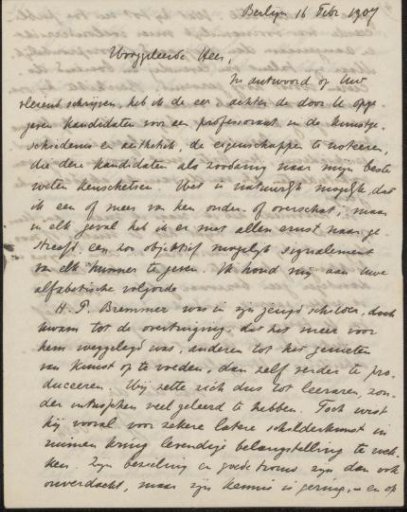 Berlijn 16 Febr. 1907
Hooggeleerde Heer,
In antwoord op Uw
vleiend schrijven, heb ik de eer achter de door U opge-
geven kandidaten voor een professoraat in de kunstge-
schiedenis en aesthetik, de eigenschappen te noteeren,
die deze kandidaten als zoodanig naar mijn beste
weten kenschetsen. Het is natuurlijk mogelijk, dat
ik een of meer van hen onder- of overschat, maar
in elk geval heb ik er met allen ernst naar ge-
streefd, een zoo objektief mogelijk signalement
van elk hunner te geven. Ik houd mij aan Uwe
alfabetische volgorde
H. P. Bremmer was in zijn jeugd schilder, doch
kwam tot de overtuiging, dat het meer voor
hem weggelegd was, anderen tot het genieten
van kunst op te voeden, dan zelf verder te pro-
duceeren. Hij zette zich dus tot leeraren, zon-
der intusschen veel geleerd te hebben. Toch wist
hij vooral voor zekere latere schilderkunst in
ruimen kring levendige belangstelling te wek-
ken. Zijn bezieling en goede trouw zijn dan ook
onverdacht, maar zijn kennis is gering, en op